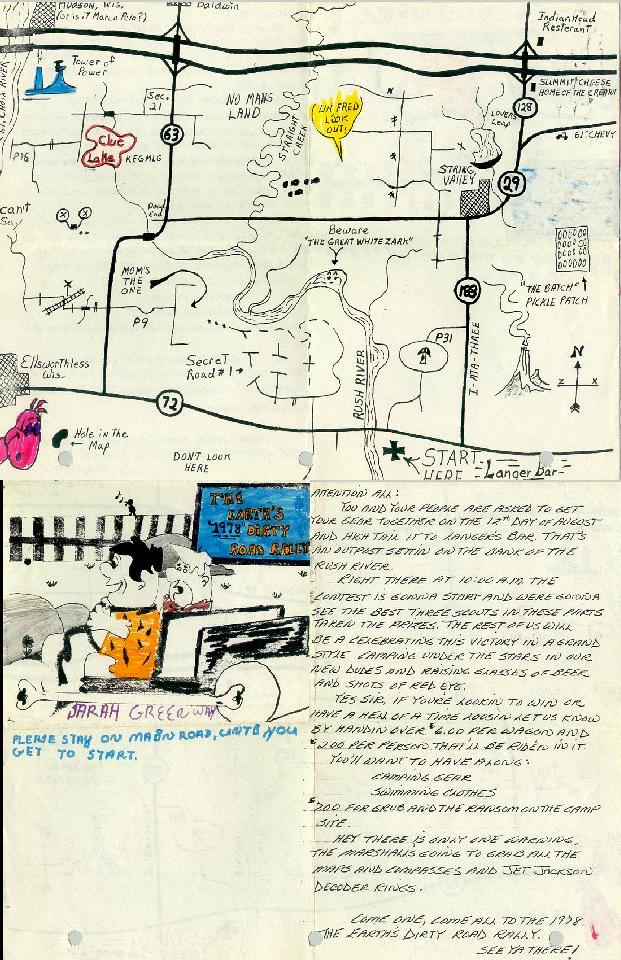 HUDSON, WIS.
(or is it Marco Polo?)
Baldwin
Indian Head
Resterant
Tower of
Power
SUMMIT CHEESE
HOME OF THE
ST. CROIX RIVER
Sec.
21
NO MANS
LAND
UH FRED
LOOK
OUT!
LOVERS
Leap
128
61' CHEVY
63
STRAIGHT
CREEK
Clue
Lake
P16
KEGMLG
STRING
VALLEY
29
can't
Say
Dead
End
Beware
"THE GREAT WHITE ZARK"
MOM'S
THE
ONE
188
"THE BATCH"
PICKLE PATCH
P9
P31
Secret
Road #1
RUSH RIVER
I-ATA-THREE
N
Z
X
Ellsworthless
Wis.
72
Hole in the
Map
DONT LOOK
HERE
START
HERE
Langer Bar
THE
EARTH'S
"1978" DIRTY
ROAD RALLY
SARAH GREENWAY
PLEASE STAY ON MAIN ROAD, UNTIL YOU
GET TO START.
ATTENTION ALL:
YOU AND YOUR PEOPLE ARE ASKED TO GET
YOUR GEAR TOGETHER ON THE 12TH DAY OF AUGUST
AND HIGH TAIL IT TO LANGER'S BAR. THAT'S
AN OUTPOST SETIN ON THE BANK OF THE
RUSH RIVER.
RIGHT THERE AT 10:00 A.M. THE
CONTEST IS GONNA START AND WERE GONNA
SEE THE BEST THREE SCOUTS IN THESE PARTS
TAKEN THE PRIZES. THE REST OF US WILL
BE A CELEBRATING THIS VICTORY IN A GRAND
STYLE CAMPING UNDER THE STARS IN OUR
NEW DUDES AND RAISING GLASSES OF BEER
AND SHOTS OF RED EYE.
YES SIR, IF YOU'RE LOOKIN TO WIN OR
HAVE A HELL OF A TIME LOOSIN LET US KNOW
BY HANDIN OVER $6.00 PER WAGON AND
$2.00 PER PERSON THAT'LL BE RIDEN IN IT.
YOU'LL WANT TO HAVE ALONG:
CAMPING GEAR
SWIMMING CLOTHES
$2.00 FOR GRUB AND THE RANSOM ON THE CAMP
SITE.
HEY THERE IS ONLY ONE WARNING,
THE MARSHALLS GOING TO GRAB ALL THE
MAPS AND COMPASSES AND JET JACKSON
DECODER RINGS.
COME ONE, COME ALL TO THE 1978
THE EARTH'S DIRTY ROAD RALLY.
SEE YA THERE!